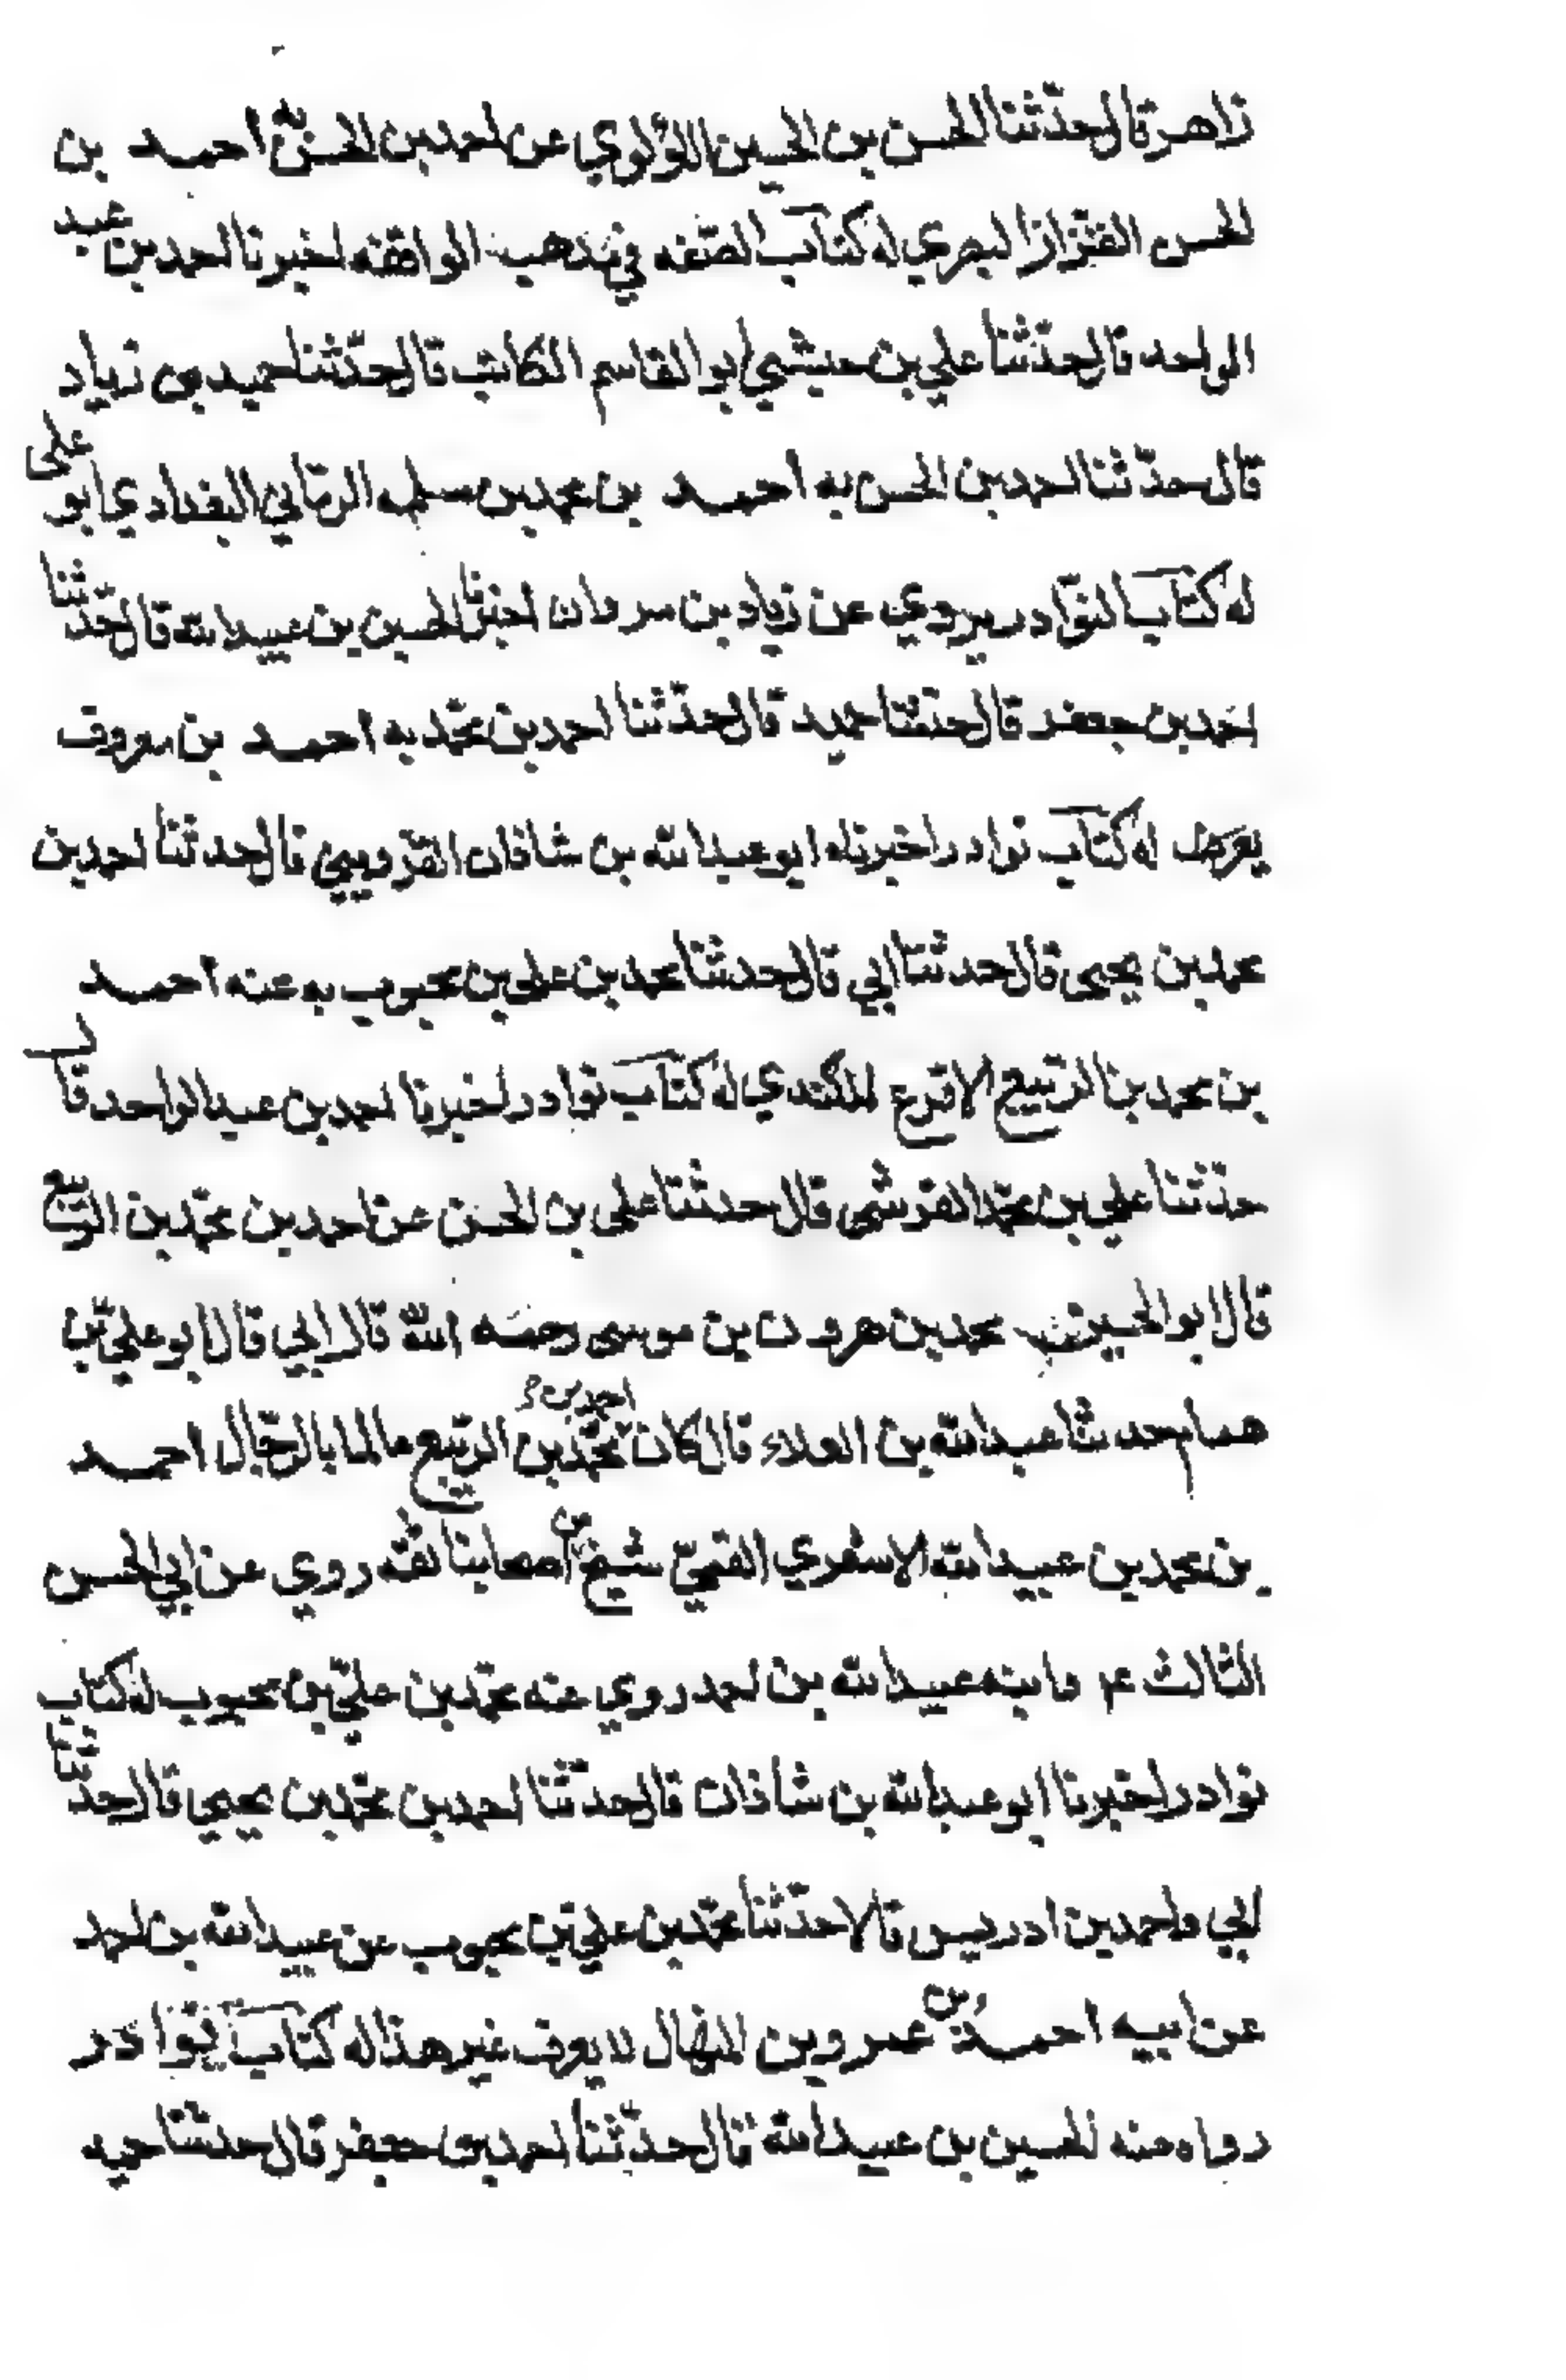 زاهر قال حدثنا الحسن بن الحسين اللؤلوي عن احمد بن الحسن به احمد بن
الحسن القزاز البصري له كتاب الصفه في مذهب الواقفه اخبرنا احمد بن عبد
الواحد قال حدثنا علي بن حبشي ابو القاسم الكاتب قال حدثنا حميد بن زياد
قال حدثنا احمد بن الحسن به احمد بن محمد بن مسلمه الرماني البغدادي ابو علي
له كتاب النوادر يروي عن زياد بن مروان اخبرنا الحسين بن عبيد الله قال حدثنا
احمد بن جعفر قال حدثنا حميد قال حدثنا احمد بن محمد به احمد بن معروف
له كتاب نوادر اخبرناه ابو عبد الله بن شاذان القزويني قال حدثنا احمد بن
محمد بن يحيى قال حدثنا ابي قال حدثنا محمد بن علي بن محبوب به عنه احمد
بن محمد بن الربيع الاقرع الكندي له كتاب نوادر اخبرنا احمد بن عبد الواحد قال
حدثنا علي بن محمد القرشي قال حدثنا علي بن الحسن عن احمد بن محمد بن الربيع
قال ابو الحسين محمد بن هرون بن موسى رحمه الله قال ابي قال ابو علي بن
همام حدثنا عبد الله بن العلاء قال كان احمد بن محمد بن الربيع عالما بالرجال احمد
بن محمد بن عبيد الله الاشعري القمي شيخ من اصحابنا ثقه روي عن ابي الحسن
الثالث ع وابنه عبيد الله بن احمد روي عنه محمد بن علي بن محبوب له كتاب
نوادر اخبرنا ابو عبد الله بن شاذان قال حدثنا احمد بن محمد بن يحيي قال حدثنا
ابي واحمد بن ادريس قالا حدثنا محمد بن علي بن محبوب عن عبيد الله بن احمد
عن ابيه احمد بن عمرو بن المنهال لا يعرف غير هذا له كتاب نوادر
رواه عنه الحسين بن عبيد الله قال حدثنا احمد بن جعفر قال حدثنا حميد